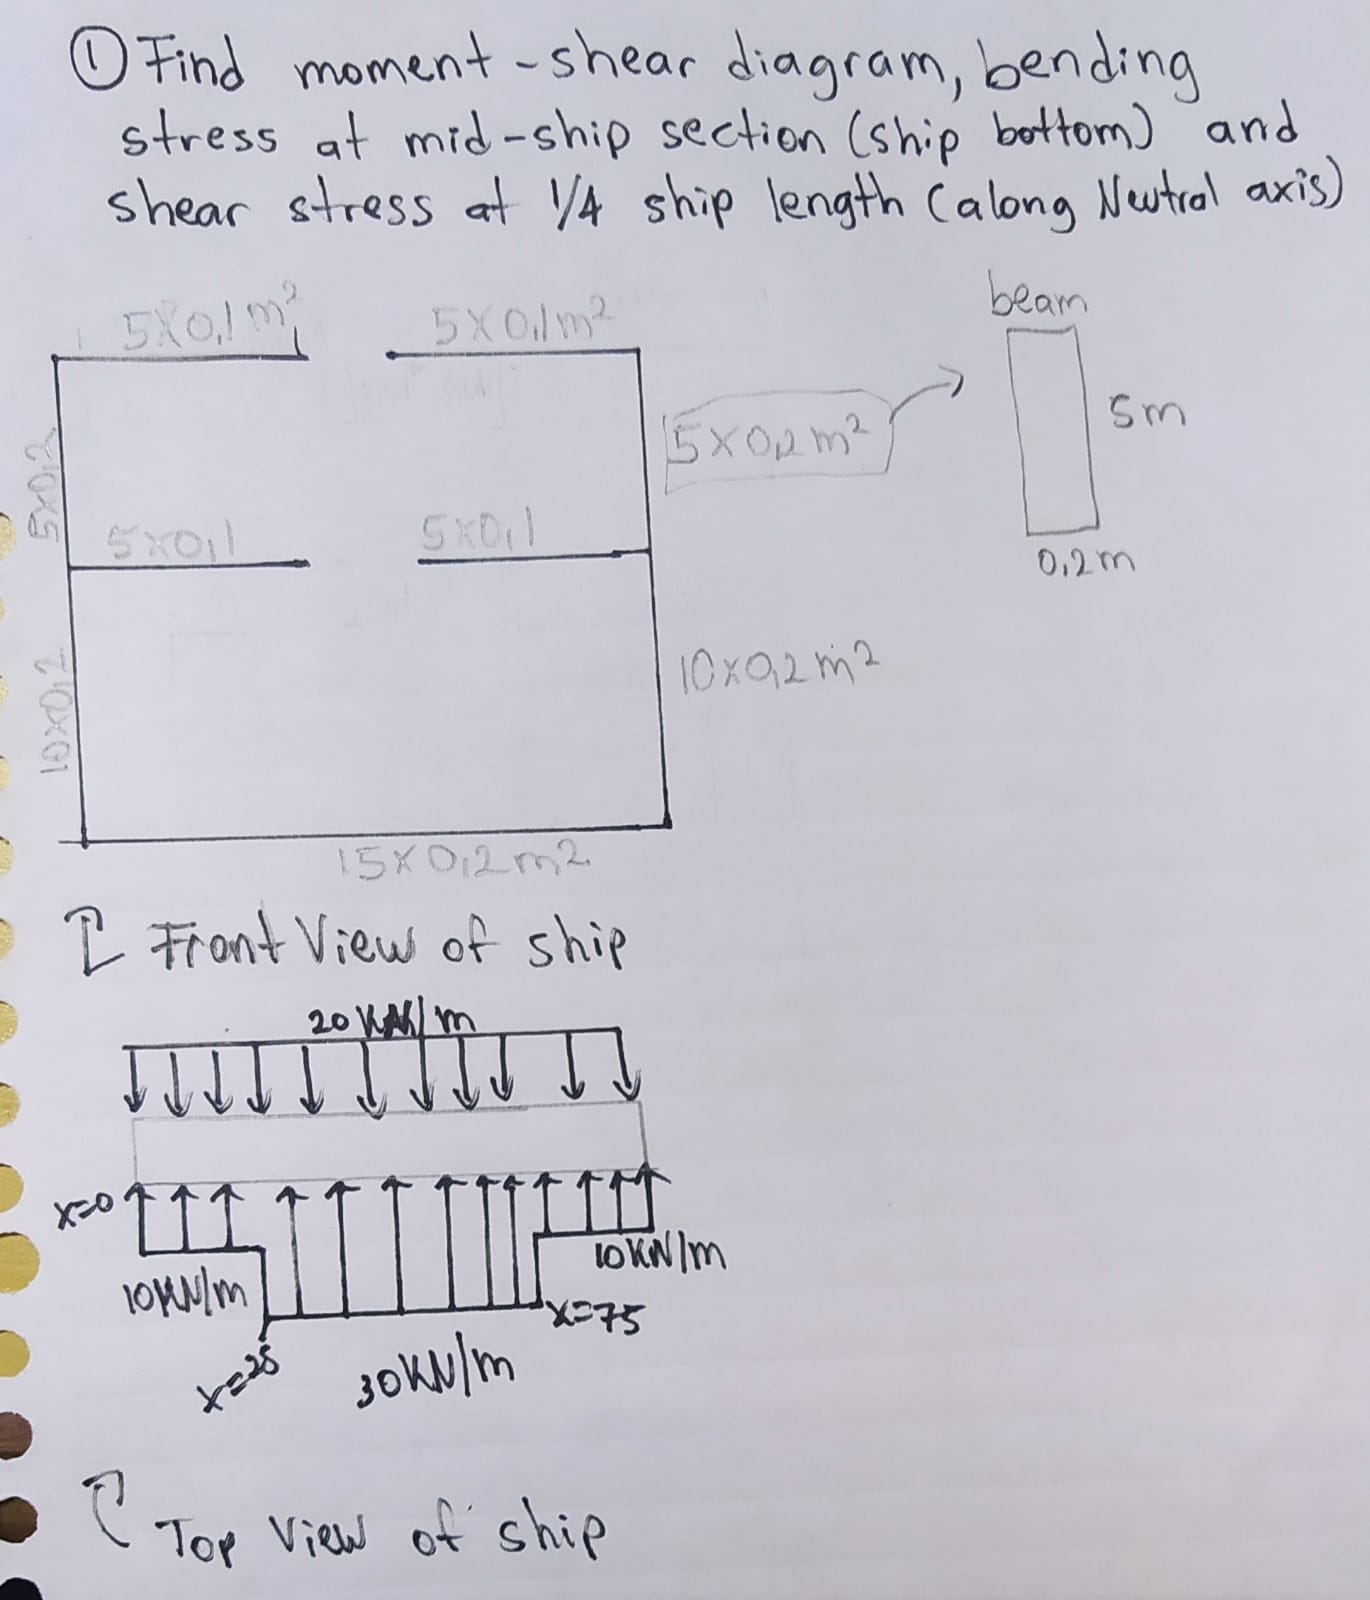 ① Find moment-shear diagram, bending
stress at mid-ship section (ship bottom) and
shear stress at 1/4 ship length (along Neutral axis)
5X0,1 m²
5X0,1m²
beam
5x0,2
5X0,2 m²
5m
5x0,1
5x0,1
0,2m
10x0,2
10x0,2 m²
15X0,2 m2
Front View of ship
20 KN/m
x=0
10KN/m
10KN/m
x=75
x=25
30KN/m
Top View of ship